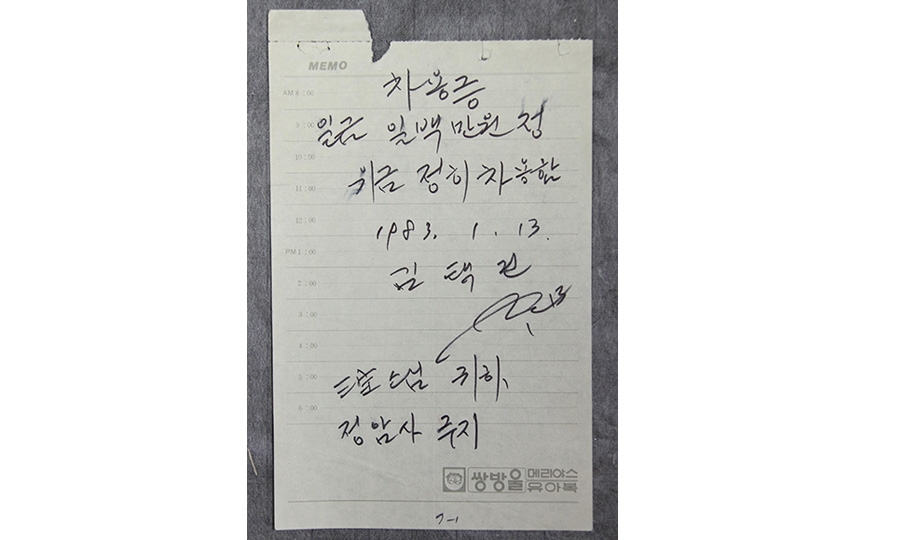 MEMO
차용증
AM 8:00
일금 일백만원 정
9:00
10:00
위금 정히 차용함
11:00
12:00
1983. 1. 13.
PM 1:00
김택
2:00
3:00
4:00
스님 귀하
5:00
6:00
정암사 주지
쌍방울 메리야스 유아복
7-1